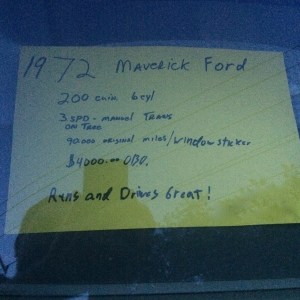 1972 Maverick Ford
200 cuin 6cyl
3 SPD - manual Trans
on Tree
90,000 original miles/window sticker
$4000.00 OBO.
Runs and Drives Great!